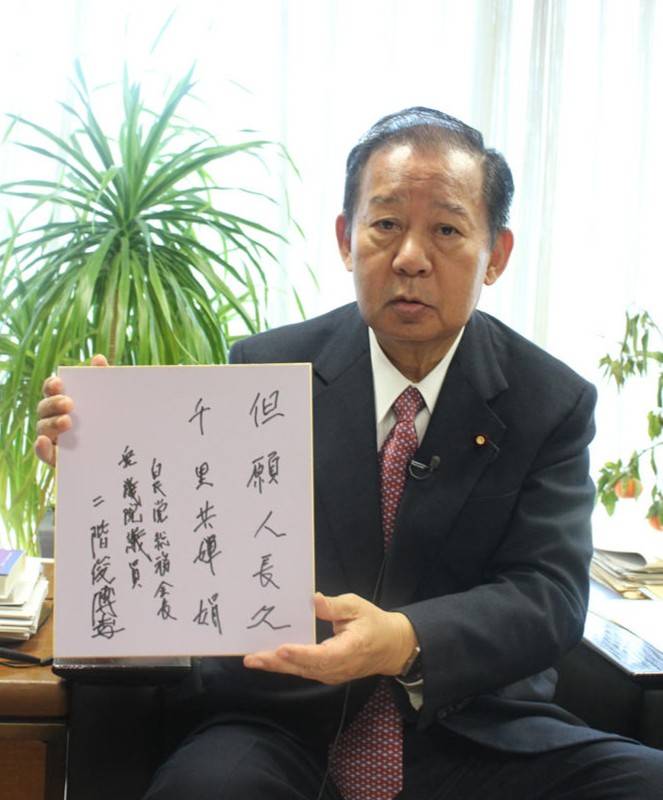 但願人長久
千里共嬋娟
自民党総務会長
衆議院議員
二階俊博